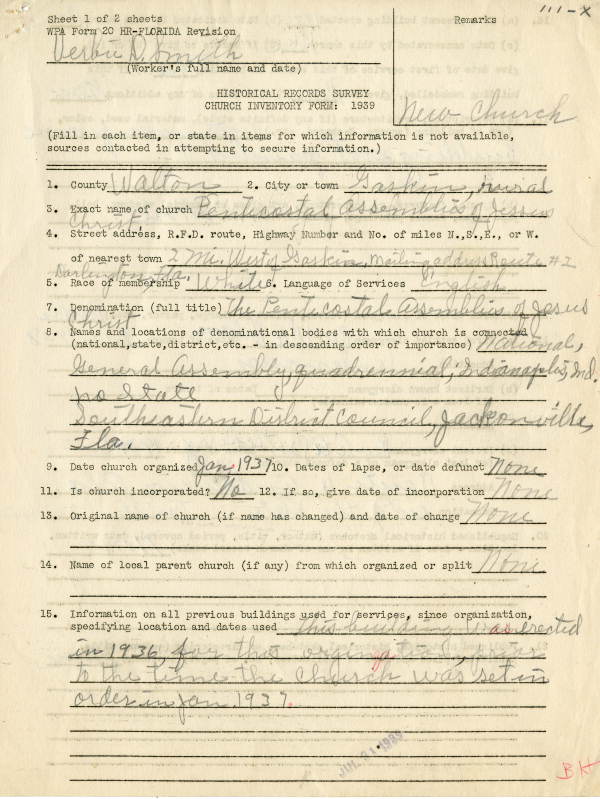 111-X
Sheet 1 of 2 sheets
WPA Form 20 HR-FLORIDA Revision
Verbie D. Smith
(Worker's full name and date)
Remarks
HISTORICAL RECORDS SURVEY
CHURCH INVENTORY FORM: 1939
New Church
(Fill in each item, or state in items for which information is not available,
sources contacted in attempting to secure information.)
1. County Walton 2. City or town Gaskin, rural
3. Exact name of church Pentecostal Assemblies of Jesus
Christ
4. Street address, R.F.D. route, Highway Number and No. of miles N.,S.,E., or W.
of nearest town 2 Mi. West of Gaskin, Mailing address Route #2
Darlington, Fla.
5. Race of membership White 6. Language of Services English
7. Denomination (full title) The Pentecostal Assemblies of Jesus
Christ
8. Names and locations of denominational bodies with which church is connected
(national,state,district,etc. - in descending order of importance) National,
General Assembly, quadrennial; Indianaplis, Ind.
no State
Southeastern District Council, Jacksonville,
Fla.
9. Date church organized Jan. 1937 10. Dates of lapse, or date defunct None
11. Is church incorporated? No 12. If so, give date of incorporation None
13. Original name of church (if name has changed) and date of change None
14. Name of local parent church (if any) from which organized or split None
15. Information on all previous buildings used for services, since organization,
specifying location and dates used this building was erected
in 1936, for this orginization, prior
to the time the church was set in
order in Jan. 1937.
JUL 21 1939
BH